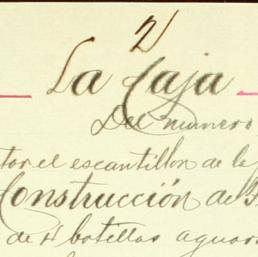 2
La Caja
Del numero
el escantillon de la
Construcción de
de 4 botellas